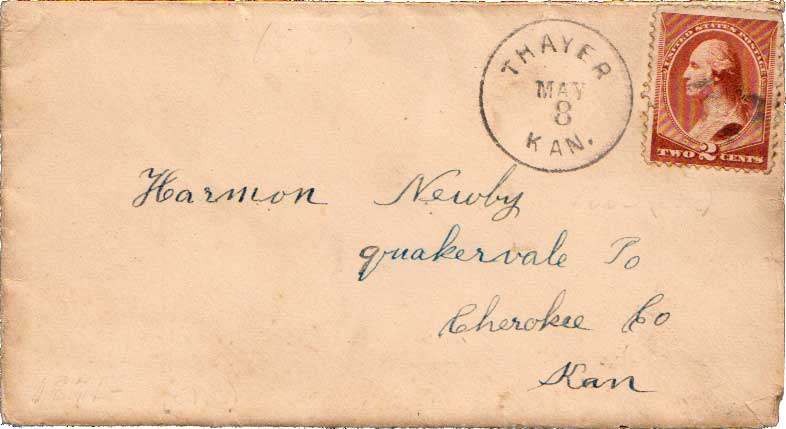 THAYER
MAY
8
KAN.
UNITED STATES POSTAGE
TWO 2 CENTS
Harmon Newby
quakervale Po
Cherokee Co
Kan